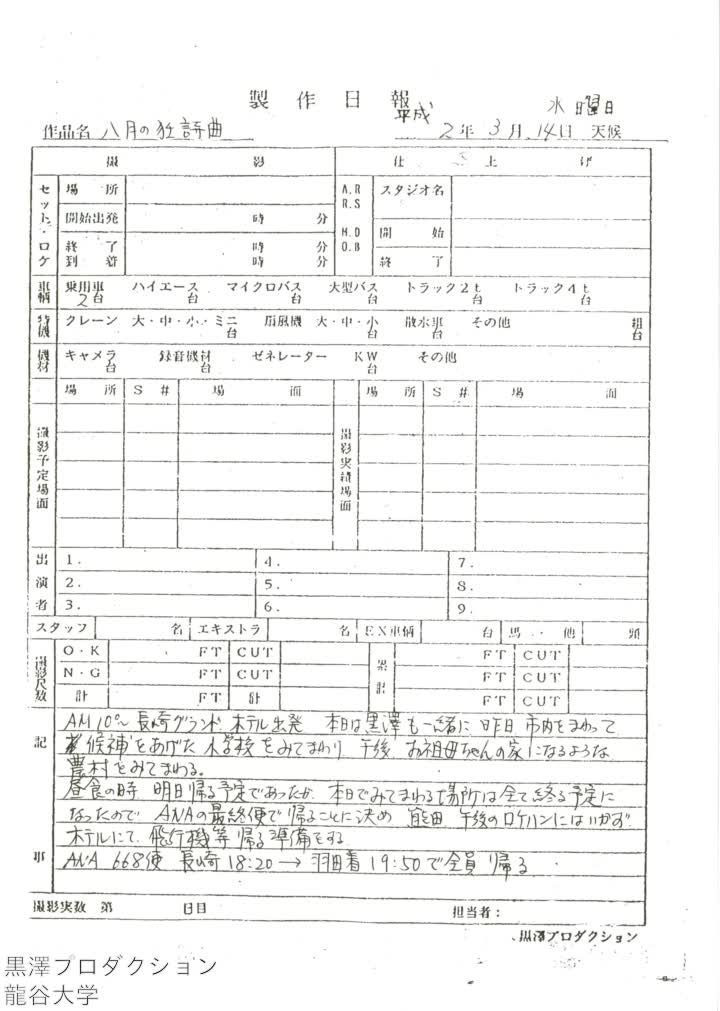 製作日報
作品名 八月の狂詩曲 平成2年3月14日 天候 水曜日
撮影 仕上げ
セット・ロケ 場所 A.R R.S スタジオ名
開始出発 時 分 M.D D.B 開始
終了 時 分 終了
到着 時 分
車輌 乗用車 2台 ハイエース 台 マイクロバス 台 大型バス 台 トラック2t 台 トラック4t 台
特機 クレーン 大・中・小・ミニ 台 扇風機 大・中・小 台 散水車 台 その他 組 台
機材 キャメラ 台 録音機材 台 ゼネレーター KW 台 その他
撮影予定場面 場所 S# 場面 撮影実績場面 場所 S# 場面
出演者 1. 4. 7.
2. 5. 8.
3. 6. 9.
スタッフ 名 エキストラ 名 EX車輌 台 馬・他 頭
撮影尺数 O・K FT CUT 累計 FT CUT
N・G FT CUT FT CUT
計 FT 計 FT CUT
記事
AM10°~ 長崎グランドホテル出発 本日は黒澤も一緒に 昨日 市内をまわって
候補をあげた 小学校をみてまわり 午後 お祖母ちゃんの家になるような
農村をみてまわる。
昼食の時 明日帰る予定であったが 本日でみてまわる場所は全て終る予定に
なったので ANAの最終便で帰ることに決め 熊田 午後のロケハンにはいかず
ホテルにて、飛行機等 帰る準備をする
ANA 668便 長崎18:20→羽田着19:50で全員帰る
撮影実数 第 日目 担当者：
黒澤プロダクション
黒澤プロダクション
龍谷大学